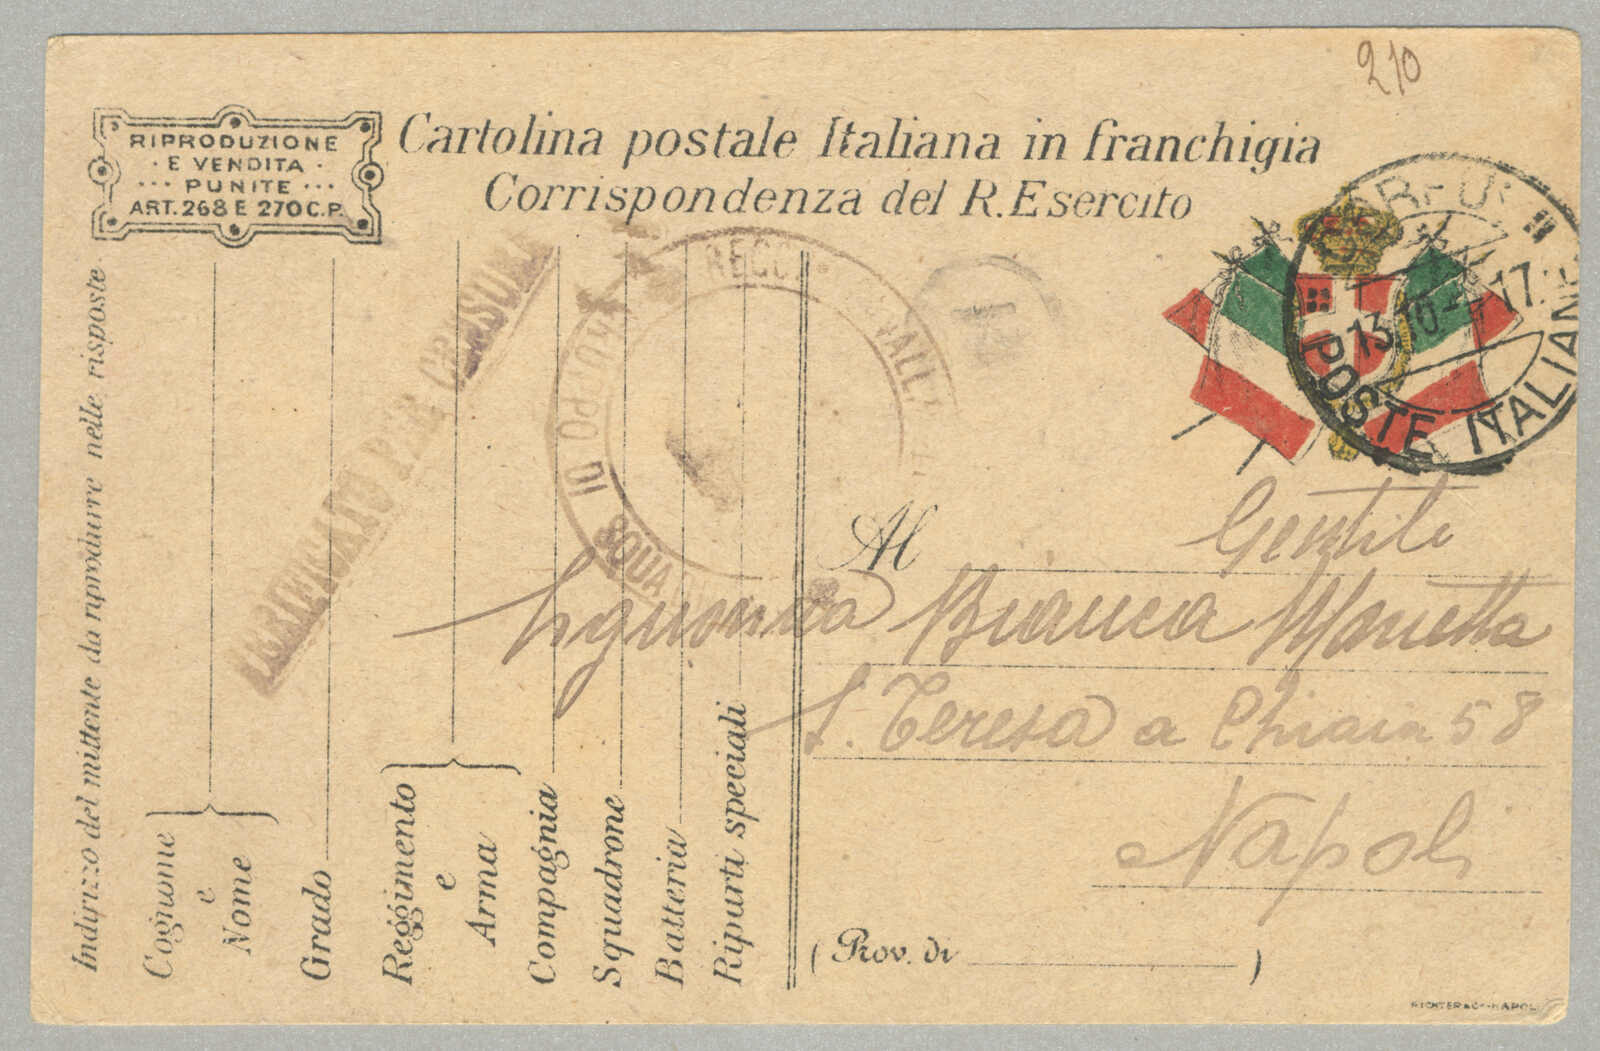 210
RIPRODUZIONE
· E VENDITA ·
··· PUNITE ···
ART. 268 E 270 C.P.
Cartolina postale Italiana in franchigia
Corrispondenza del R. Esercito
POSTE ITALIANE
VERIFICATO PER CENSURA
GRUPPO DI
Al Gentile
Signorina Bianca Marietta
S. Teresa a Chiaia 58
Napoli
( Prov. di )
Indirizzo del mittente da riprodurre nelle risposte
Cognome
e
Nome
Grado
Reggimento
e
Arma
Compagnia
Squadrone
Batteria
Ripurti speciali
RICHTER & Co - NAPOLI